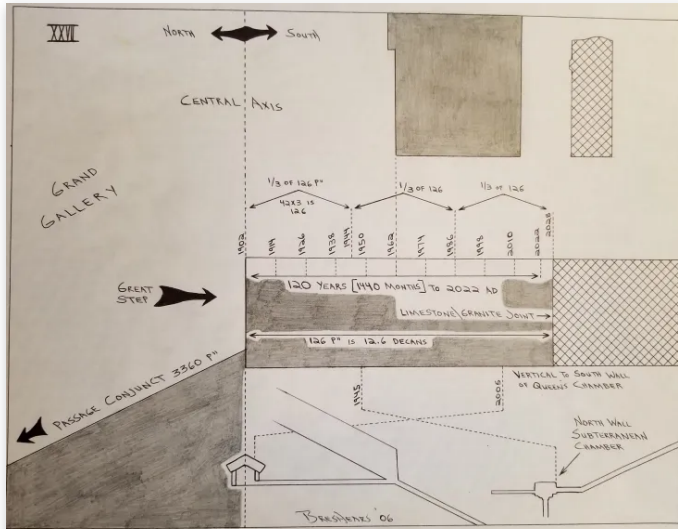 XXVII
NORTH
SOUTH
CENTRAL AXIS
GRAND
GALLERY
1/3 OF 126 P"
42X3 IS
126
1/3 OF 126
1/3 OF 126
1902
1914
1926
1938
1944
1950
1962
1974
1986
1998
2010
2022
2028
GREAT
STEP
120 YEARS [1440 MONTHS] TO 2022 AD
LIMESTONE\GRANITE JOINT
126 P" IS 12.6 DECANS
PASSAGE CONJUNCT 3360 P"
VERTICAL TO SOUTH WALL
OF QUEENS CHAMBER
1945
2006
NORTH WALL
SUBTERRANEAN
CHAMBER
BERSHEARS '06